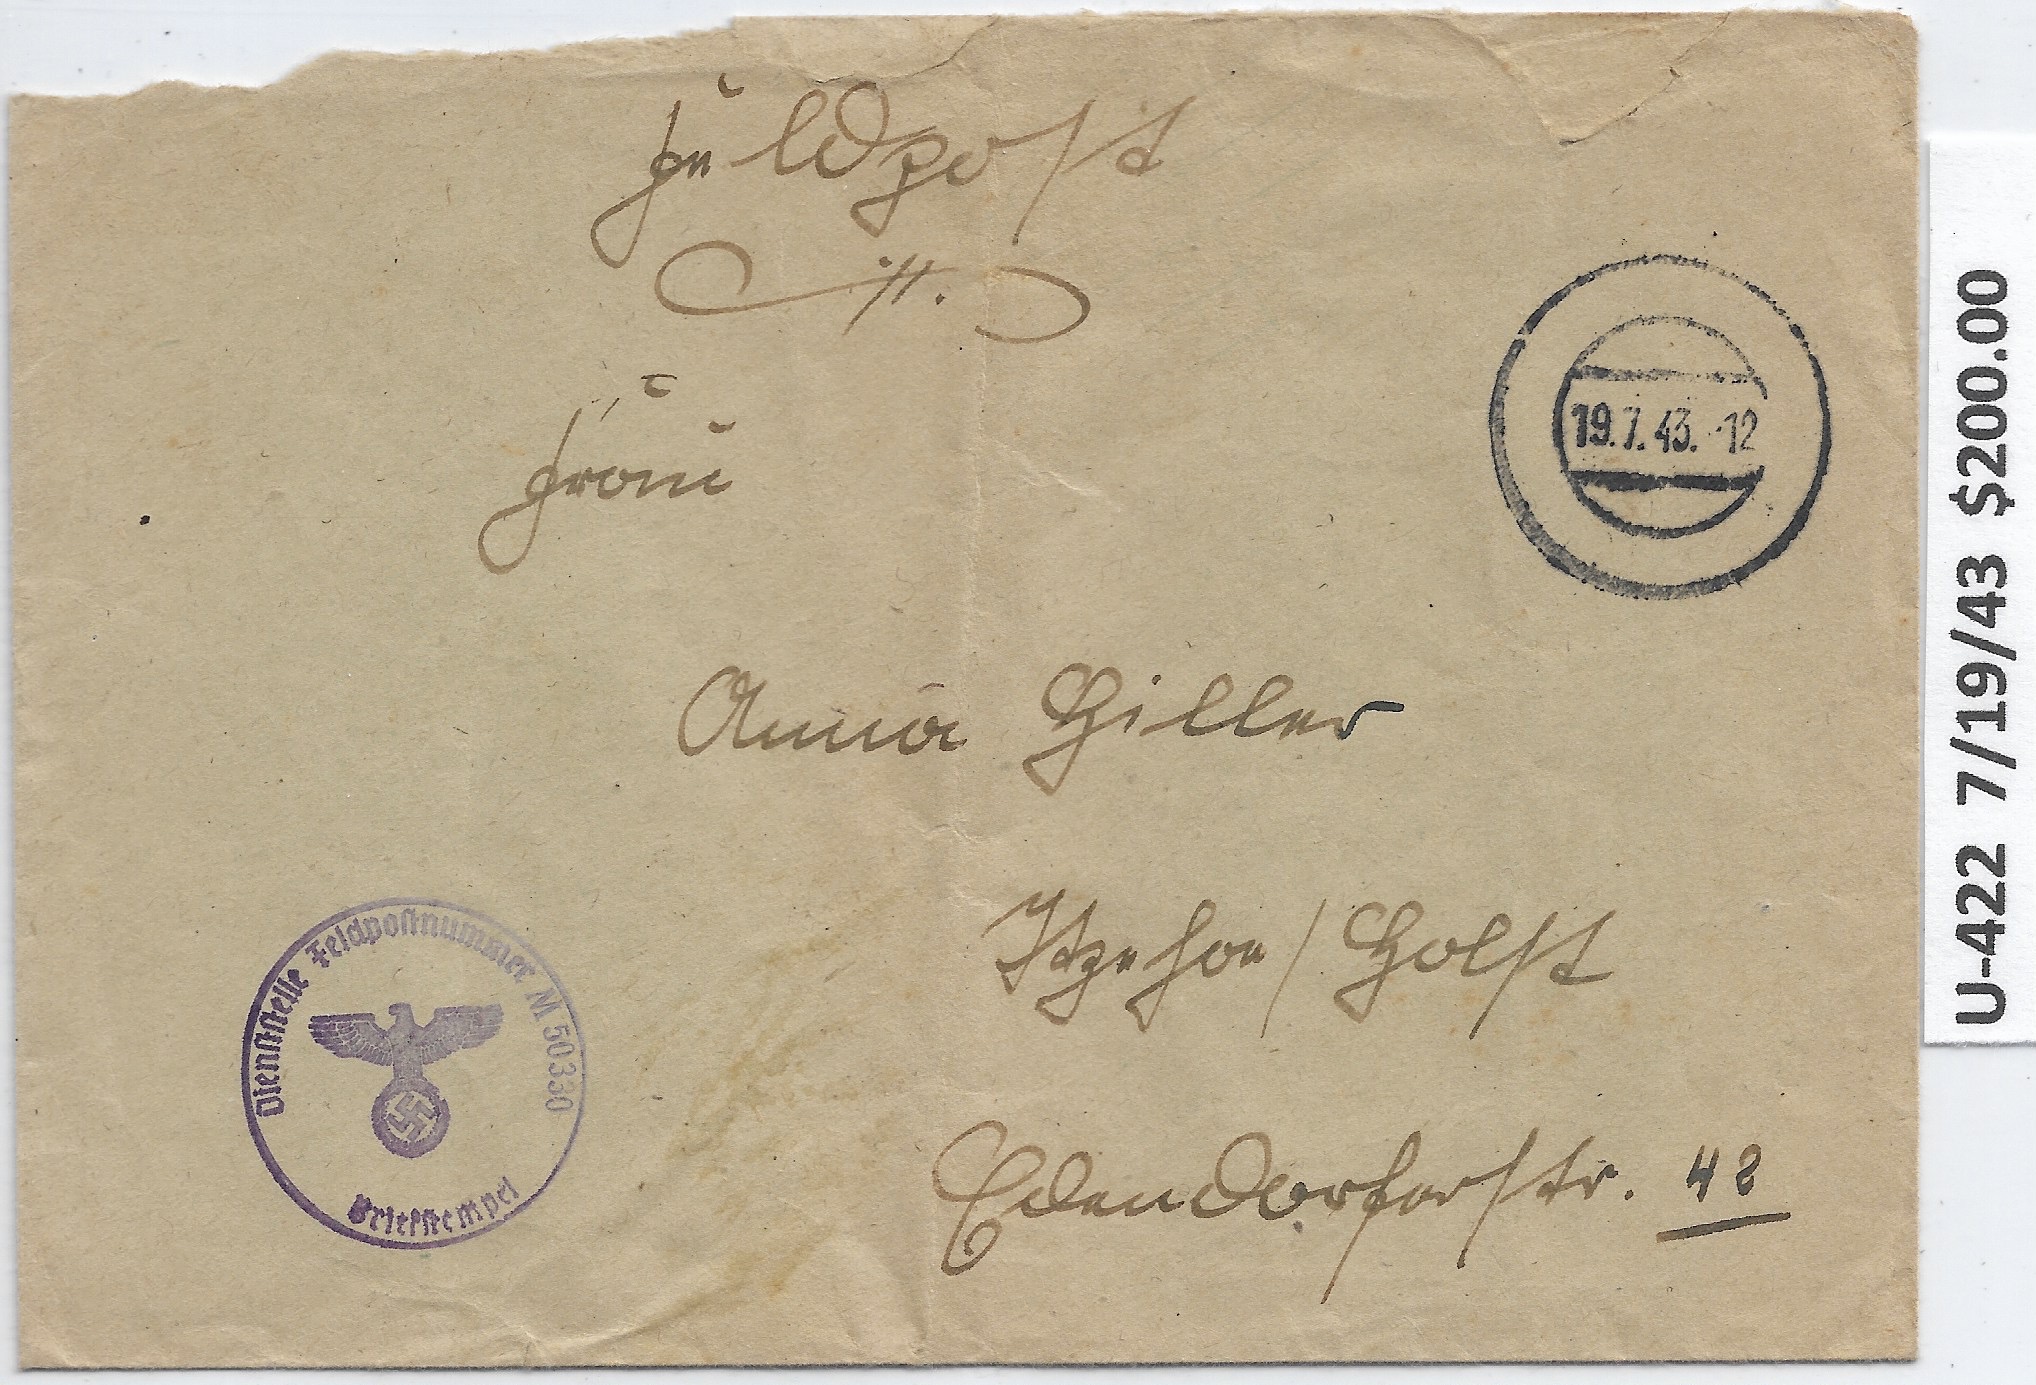 Feldpost
Frau
19.7.43.-12
Anna Hiller
Itzehoe/Holst
Edendorferstr. 48
Dienststelle Feldpostnummer M 50330
Briefstempel
U-422 7/19/43 $200.00